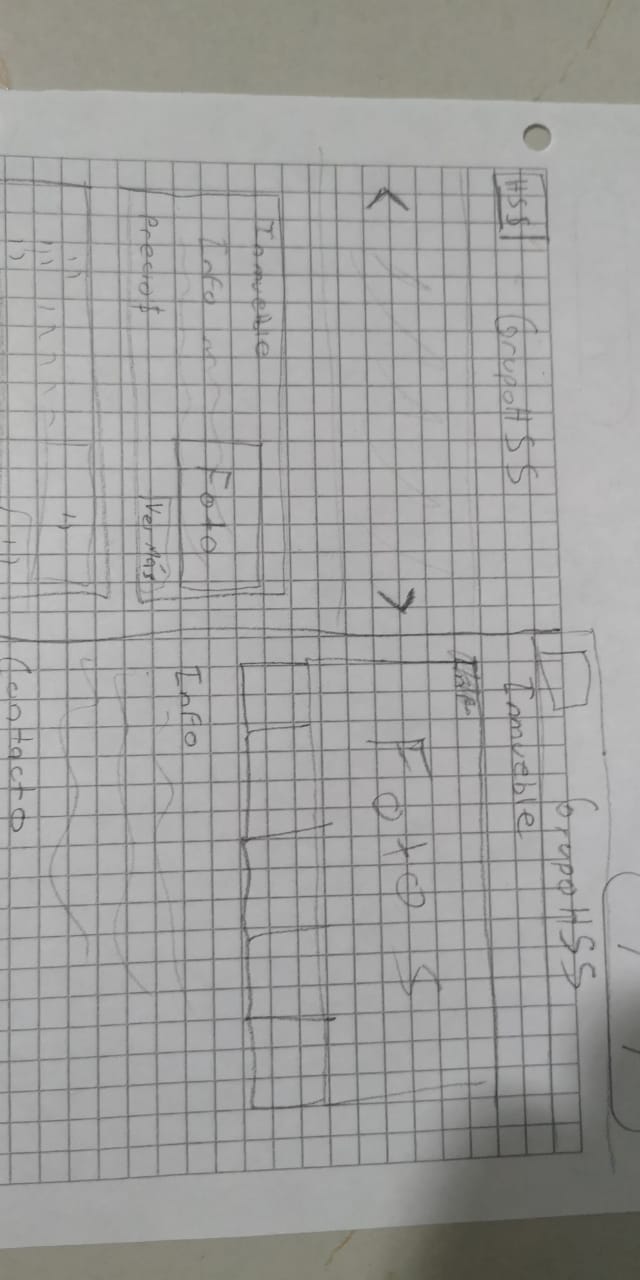 HSS GrupoHSS
< >
Inmueble
Info
Foto
Precio$
Ver Más
GrupoHSS
Inmueble
Fotos
Info
Contacto